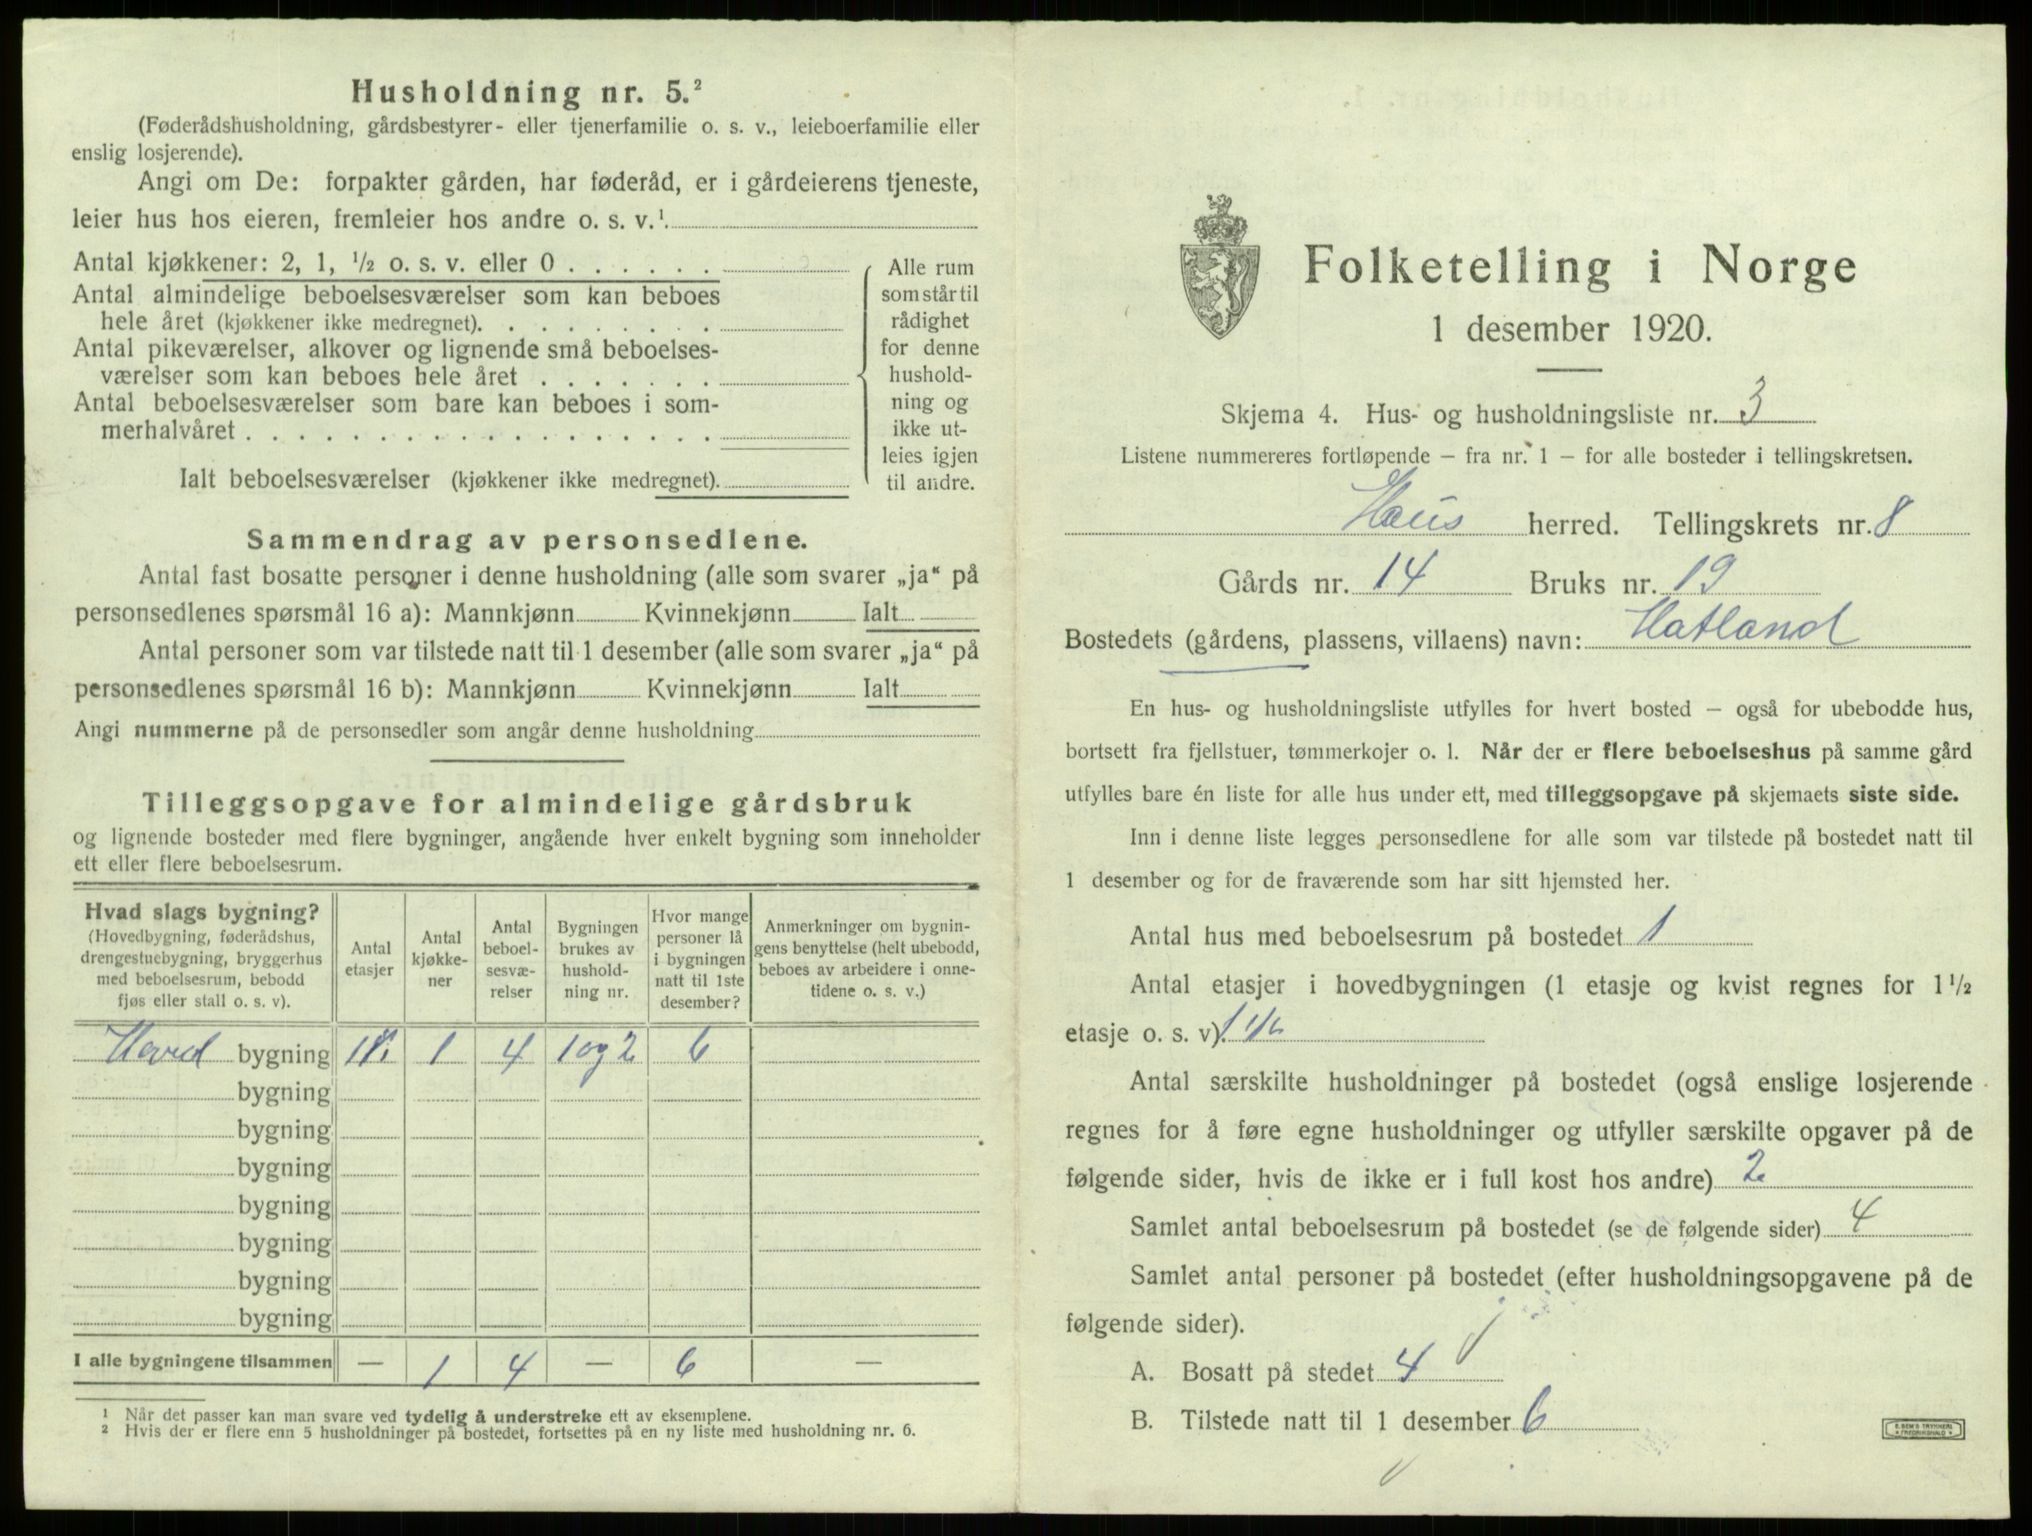 Husholdning nr. 5.²
(Føderådshusholdning, gårdsbestyrer- eller tjenerfamilie o. s. v., leieboerfamilie eller
enslig losjerende).
Angi om De: forpakter gården, har føderåd, er i gårdeierens tjeneste,
leier hus hos eieren, fremleier hos andre o. s. v.¹.
Antal kjøkkener: 2, 1, ½ o. s. v. eller 0 . . . . . .
Antal almindelige beboelsesværelser som kan beboes
hele året (kjøkkener ikke medregnet). . . . . . . . .
Antal pikeværelser, alkover og lignende små beboelses-
værelser som kan beboes hele året . . . . . . .
Antal beboelsesværelser som bare kan beboes i som-
merhalvåret . . . . . . . . . . . . . . . . . .
Ialt beboelsesværelser (kjøkkener ikke medregnet).
Alle rum
som står til
rådighet
for denne
hushold-
ning og
ikke ut-
leies igjen
til andre.
Sammendrag av personsedlene.
Antal fast bosatte personer i denne husholdning (alle som svarer „ja“ på
personsedlenes spørsmål 16 a): Mannkjønn Kvinnekjønn Ialt
Antal personer som var tilstede natt til 1 desember (alle som svarer „ja“ på
personsedlenes spørsmål 16 b): Mannkjønn Kvinnekjønn Ialt
Angi nummerne på de personsedler som angår denne husholdning
Tilleggsopgave for almindelige gårdsbruk
og lignende bosteder med flere bygninger, angående hver enkelt bygning som inneholder
ett eller flere beboelsesrum.
Hvad slags bygning?
(Hovedbygning, føderådshus,
drengestuebygning, bryggerhus
med beboelsesrum, bebodd
fjøs eller stall o. s. v).
Antal
etasjer
Antal
kjøkke-
ner
Antal
beboel-
sesvæ-
relser
Bygningen
brukes av
hushold-
ning nr.
Hvor mange
personer lå
i bygningen
natt til 1ste
desember?
Anmerkninger om bygnin-
gens benyttelse (helt ubebodd,
beboes av arbeidere i onne-
tidene o. s. v.)
Hoved bygning 1½ 1 4 1 og 2 6
bygning
bygning
bygning
bygning
bygning
bygning
bygning
I alle bygningene tilsammen — 1 4 — 6 —
¹ Når det passer kan man svare ved tydelig å understreke ett av eksemplene.
² Hvis der er flere enn 5 husholdninger på bostedet, fortsettes på en ny liste med husholdning nr. 6.
Folketelling i Norge
1 desember 1920.
Skjema 4. Hus- og husholdningsliste nr. 3
Listene nummereres fortløpende — fra nr. 1 — for alle bosteder i tellingskretsen.
Haus herred. Tellingskrets nr. 8
Gårds nr. 14 Bruks nr. 19
Bostedets (gårdens, plassens, villaens) navn: Hatland
En hus- og husholdningsliste utfylles for hvert bosted — også for ubebodde hus,
bortsett fra fjellstuer, tømmerkojer o. l. Når der er flere beboelseshus på samme gård
utfylles bare én liste for alle hus under ett, med tilleggsopgave på skjemaets siste side.
Inn i denne liste legges personsedlene for alle som var tilstede på bostedet natt til
1 desember og for de fraværende som har sitt hjemsted her.
Antal hus med beboelsesrum på bostedet 1
Antal etasjer i hovedbygningen (1 etasje og kvist regnes for 1½
etasje o. s. v). 1½
Antal særskilte husholdninger på bostedet (også enslige losjerende
regnes for å føre egne husholdninger og utfyller særskilte opgaver på de
følgende sider, hvis de ikke er i full kost hos andre) 2
Samlet antal beboelsesrum på bostedet (se de følgende sider) 4
Samlet antal personer på bostedet (efter husholdningsopgavene på de
følgende sider).
A. Bosatt på stedet 4
B. Tilstede natt til 1 desember 6
E. SEM'S TRYKKERI
FREDRIKSHALD